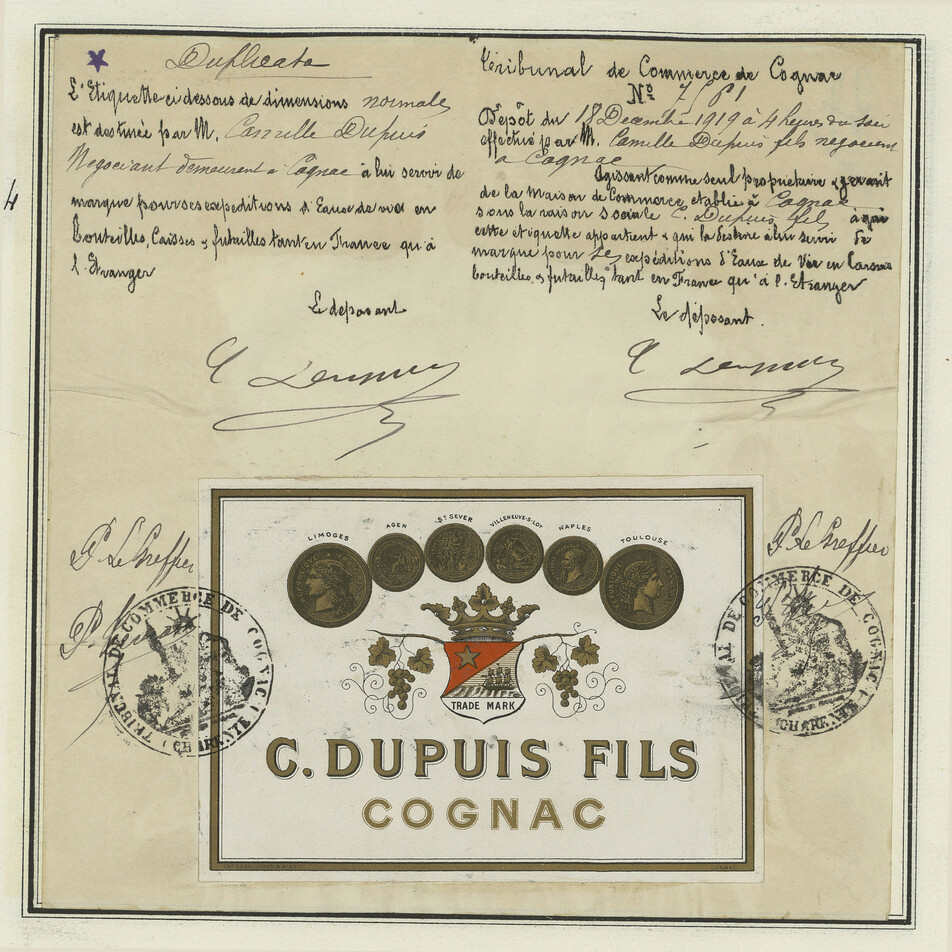 Duplicata
L'Etiquette ci dessous de dimensions normales
est destinée par M. Camille Dupuis
Négociant demeurant à Cognac à lui servir de
marque pour ses expeditions d'Eaux de vie en
bouteilles, Caisses & futailles tant en France qu'à
l'Etranger
Le déposant
C Dupuis
Tribunal de Commerce de Cognac
No 7561
Dépôt du 18 Decembre 1919 à 4 heures du soir
effectué par M. Camille Dupuis fils negociant
a Cognac
Agissant comme seul propriétaire & gerant
de la Maison de Commerce etablie à Cognac
sous la raison sociale C. Dupuis fils à qui
cette etiquette appartient & qui la destine à lui servir de
marque pour ses expéditions d'Eaux de Vie en Caisses
bouteilles & futailles tant en France qu'à l'Etranger
Le déposant.
C Dupuis
4
P. Le Greffier
P. Le Greffier
TRIBUNAL DE COMMERCE DE COGNAC
(CHARENTE)
TRIBUNAL DE COMMERCE DE COGNAC
(CHARENTE)
LIMOGES
AGEN
ST SEVER
VILLENEUVE-S-LOT
NAPLES
TOULOUSE
TRADE MARK
C. DUPUIS FILS
COGNAC